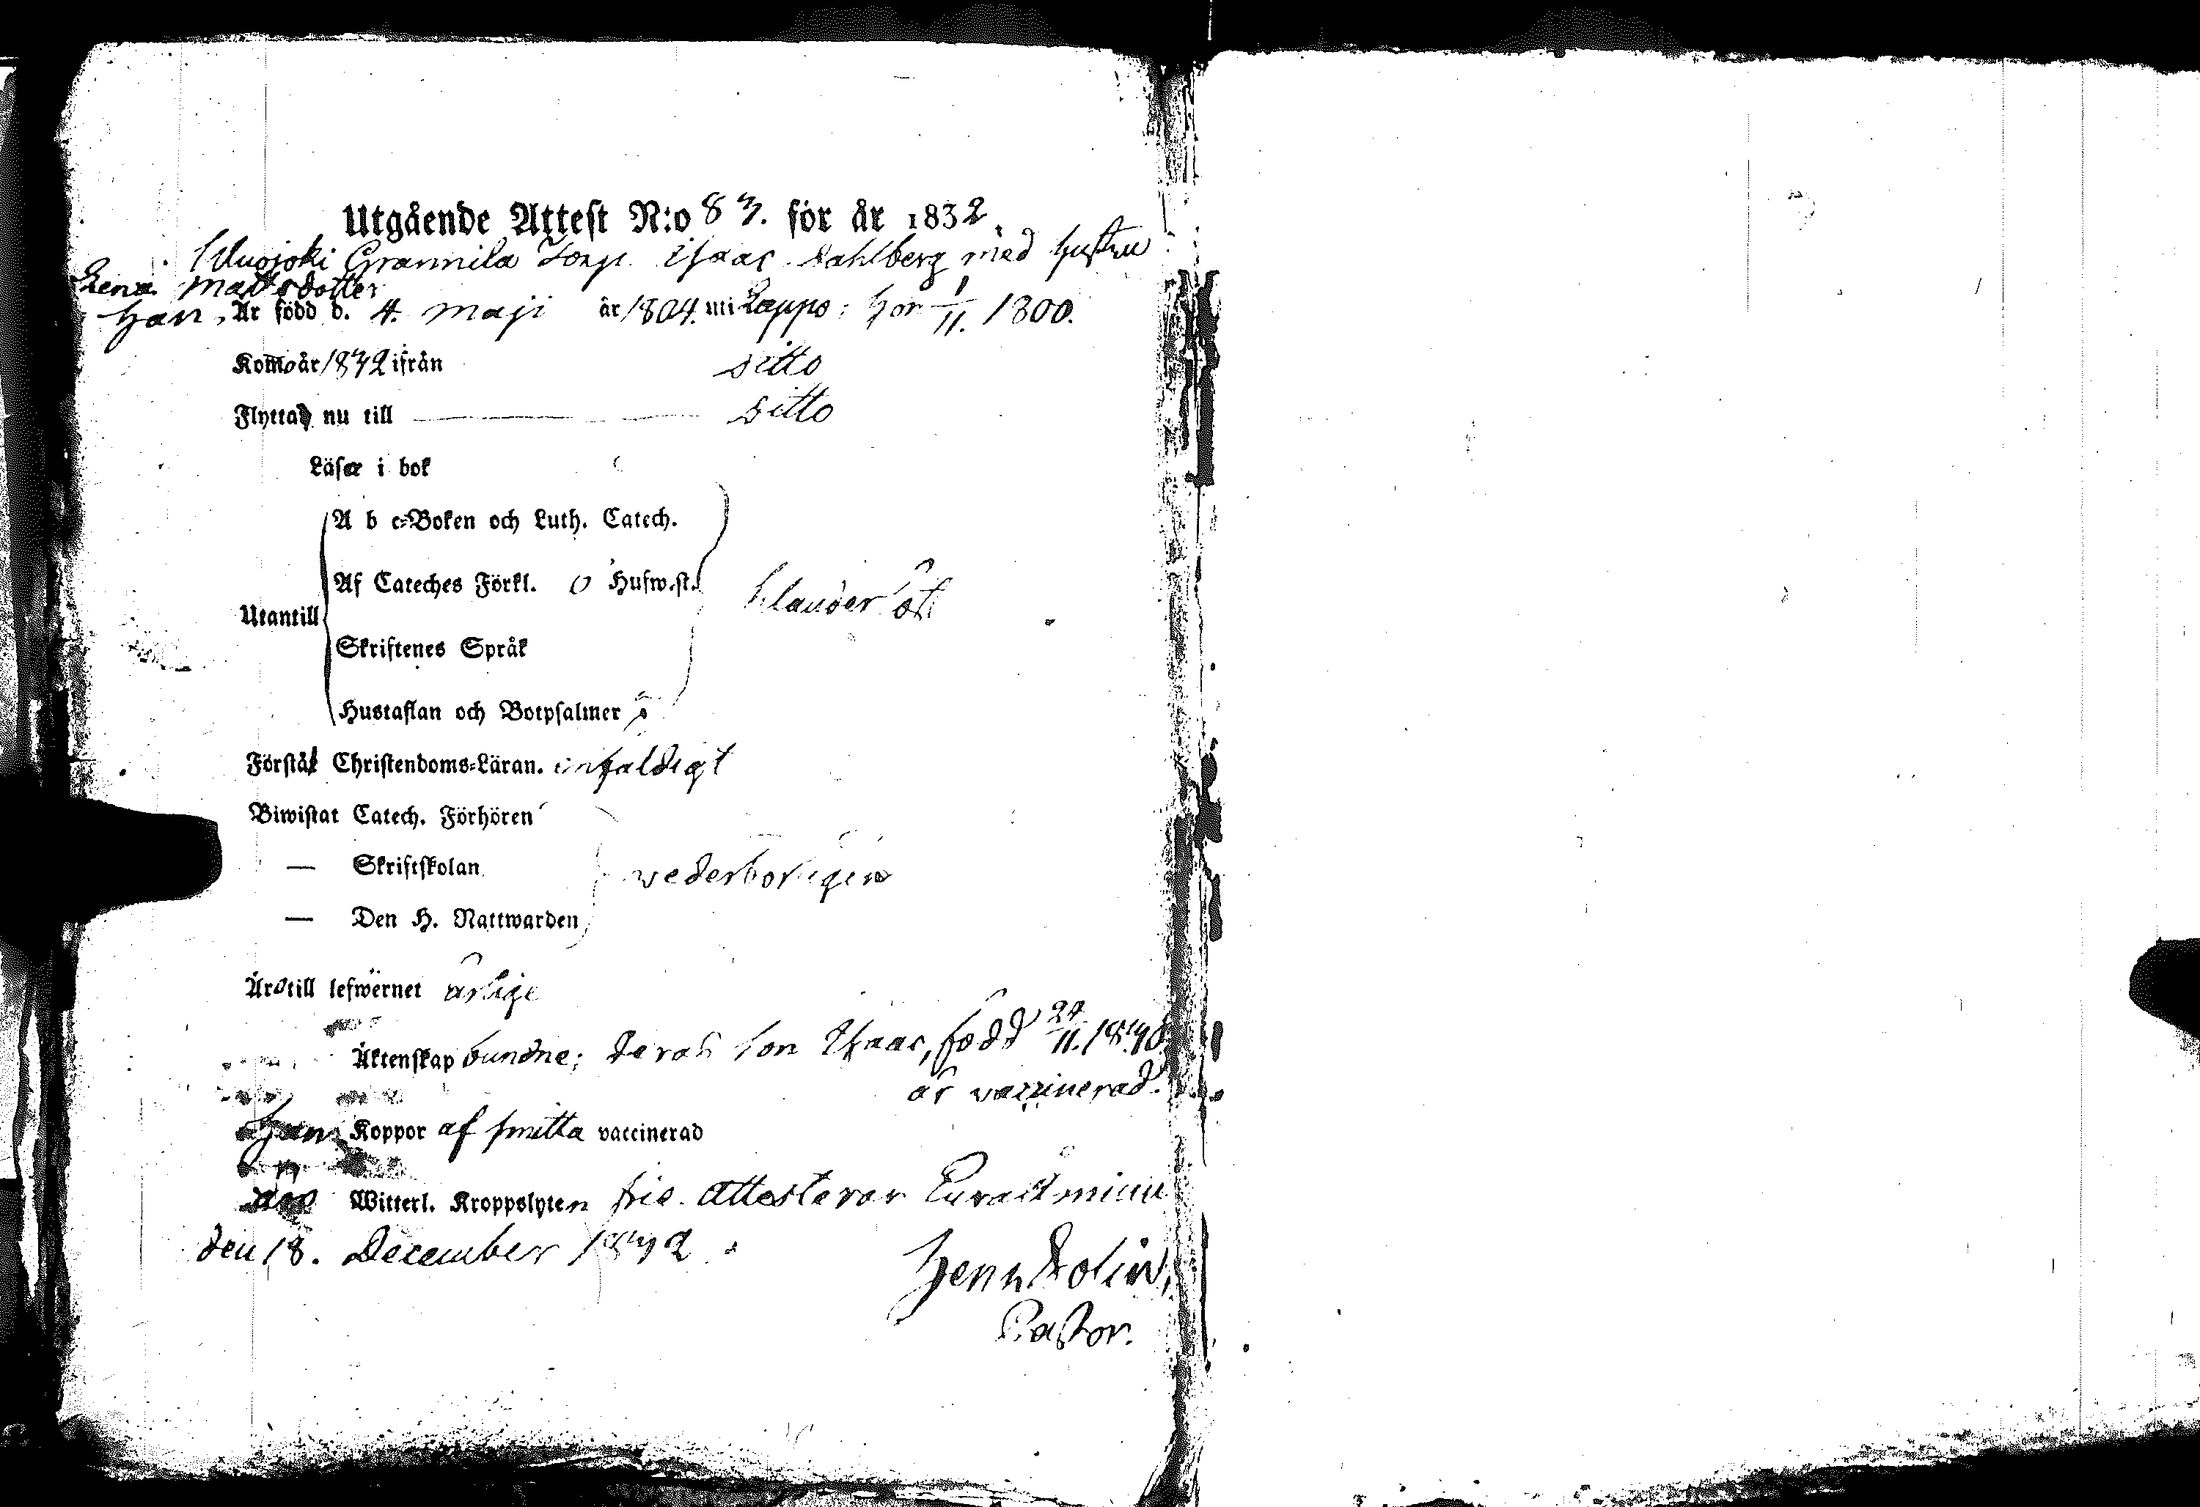 Utgående Attest N:o 83. för år 1832.
Grannila Torp. Isaac Dahlberg med hustru
Lena Mattsdotter
Han, Är född d. 4. Maji år 1804. uti Lappo; hon 1/11. 1800.
Komo år 1832 ifrån ditto
Flytta nu till ditto
Läsa i bok
A b c-Boken och Luth. Catech.
Af Cateches Förkl. o Husw.st.
Utantill klander
Skriftenes Språk
Hustaflan och Botpsalmer
Förstå Christendoms-Läran. enfaldigt
Biwistat Catech. Förhören
— Skriftskolan wederbörligen
— Den H. Nattwarden
Äro till lefwernet ärlige
Äktenskap bundne; deras son Isaac, född 24/11.
är vaccinerad.
Han Koppor af smitta vaccinerad
Witterl. Kroppslyten frie. Attesterar Euraåminne
den 18. December 1832.
Pastor.